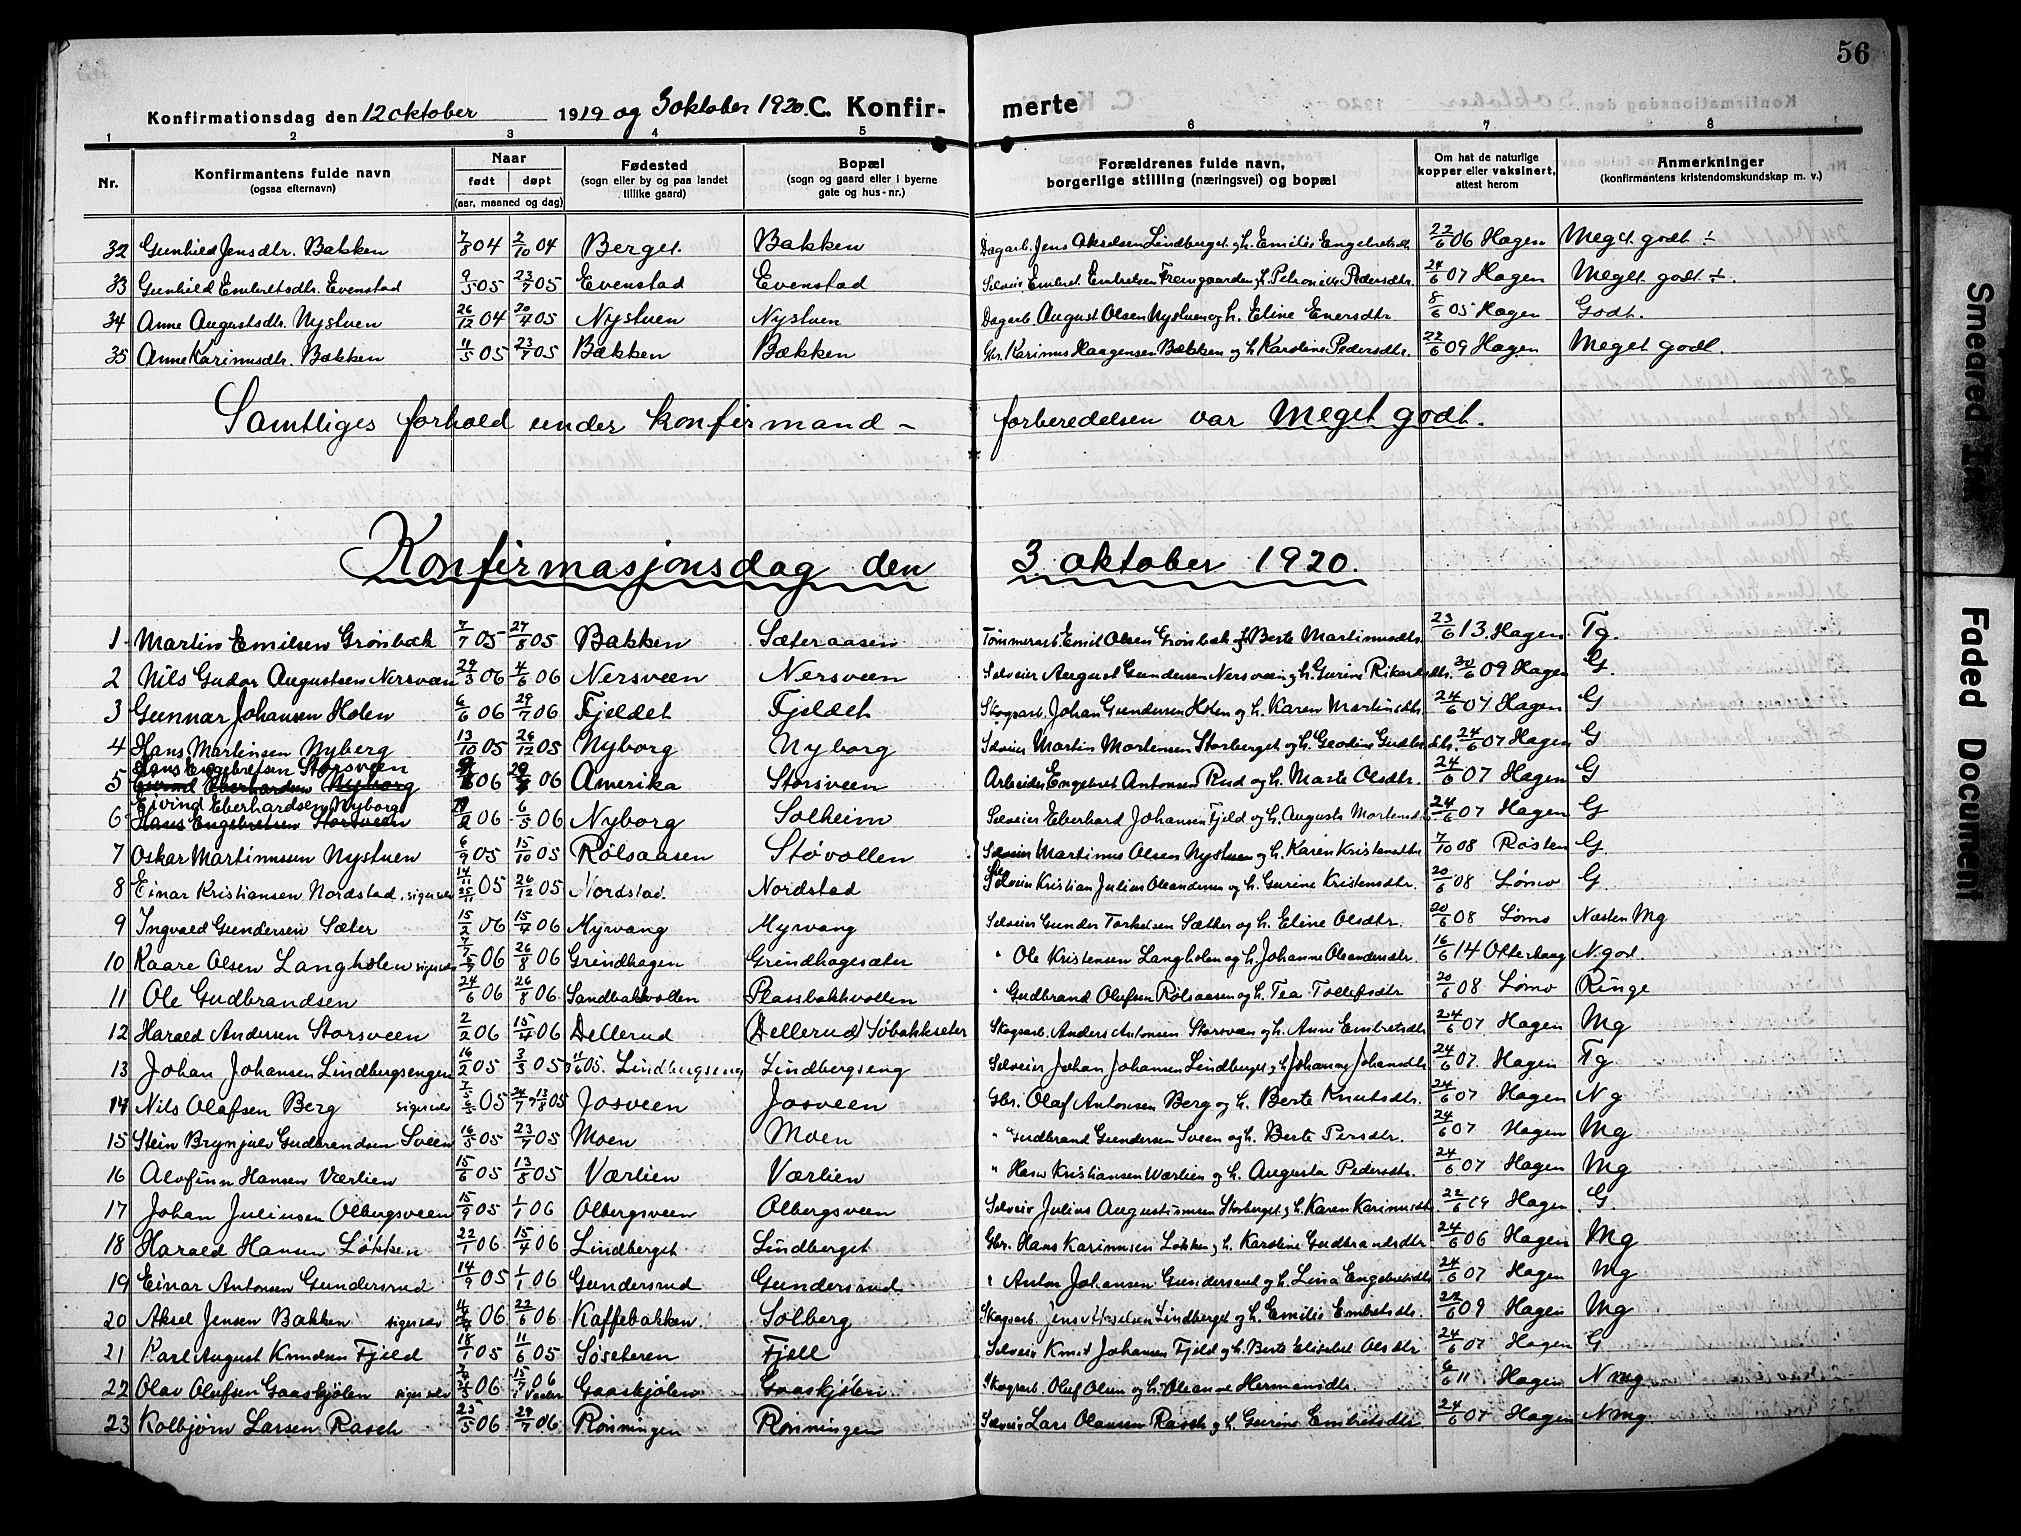 56
Konfirmationsdag den 12 oktober 1919 og 3 oktober 1920. C. Konfirmerte
1 2 3 4 5 6 7 8
Nr. Konfirmantens fulde navn (ogsaa efternavn) Naar født døpt (aar, maaned og dag) Fødested (sogn eller by og paa landet tillike gaard) Bopæl (sogn og gaard eller i byerne gate og hus-nr.) Forældrenes fulde navn, borgerlige stilling (næringsvei) og bopæl Om hat de naturlige kopper eller vaksinert, attest herom Anmerkninger (konfirmantens kristendomskundskap m. v.)
32 Gunhild Jensdtr. Bakken 7/8 04 2/10 04 Berget Bakken Dagarb. Jens Akselsen Lindberget og h. Emilie Engebretsdtr. 22/6 06 Hagen Meget godt ÷
33 Gunhild Embretsdtr. Evenstad 9/5 05 23/7 05 Evenstad Evenstad Selveier Embret Embretsen Fremgaarden og h. Petronille Pedersdtr. 24/6 07 Hagen Meget godt ÷.
34 Anne Augustsdtr. Nystuen 26/12 04 20/4 05 Nystuen Nystuen Dagarb. August Olsen Nystuen og h. Eline Enersdtr 8/6 05 Hagen Godt.
35 Anne Karinusdtr. Bækken 11/5 05 23/7 05 Bækken Bækken Gbr. Karinus Haagensen Bækken og h. Karoline Pedersdtr. 22/6 09 Hagen Meget godt.
Samtliges forhold under konfirmand- forberedelsen var Meget godt.
Konfirmasjonsdag den 3 oktober 1920.
1 Martin Emilsen Grønbæk 7/7 05 27/8 05 Bakken Sæteraasen Tømmerarb. Emil Olsen Grønbæk og h. Berte Martinusdtr. 23/6 13. Hagen Tg.
2 Nils Gudor Augustsen Nersveen 29/3 06 4/6 06 Nersveen Nersveen Selveier August Gundersen Nersveen og h. Gurine Rikardsdtr. 30/6 09 Hagen G.
3 Gunnar Johansen Holen 6/6 06 29/7 06 Fjeldet Fjeldet Skogsarb. Johan Gundersen Holen og h. Karen Martinsdtr. 24/6 07 Hagen G
4 Hans Martinsen Nyberg 13/10 05 26/12 05 Nyborg Nyborg Selveier Martin Mortensen Storberget og h. Geoline Gudbr.dtr. 24/6 07 Hagen G
5 Hans Engebretsen Storsveen Eivind Eberhardsen Nyborg 06 06 Amerika Storsveen Arbeider Engebret Antonsen Rud og h. Marte Olsdtr. 24/6 07 Hagen G
6 Eivind Eberhardsen Nyborg Hans Engebretsen Storsveen 2 06 6/5 06 Nyborg Solheim Selveier Eberhard Johansen Fjeld og h. Augusta Mortensdtr 24/6 07 Hagen G
7 Oskar Martinusen Nystuen 6/9 05 15/10 05 Rølsaasen Støvollen Selveier Martinus Olsen Nystuen og h. Karen Kristensdtr 7/10 08 Røsten G.
8 Einar Kristiansen Nordstad. siger selv 14/11 25/11 05 26/12 05 Nordstad. Nordstad Selveier Kristian Julius Oleandersen og h. Gurine Kristensdtr. 20/6 08 Lømo G
9 Ingvald Gundersen Sæter 15/2 06 15/4 06 Myrvang Myrvang Selveier Gunder Torkelsen Sæther og h. Eline Olsdtr. 20/6 08 Lømo Næsten Mg
10 Kaare Olsen Langholen siger selv 7/7 5/7 06 26/8 06 Grindhagen Grindhagesæter " Ole Kristensen Langholen og h. Johanne Oleandersdtr. 16/6 14 Otterberg N. god.
11 Ole Gudbrandsen 24/6 06 26/8 06 Sandbakvollen Plassbakkvollen " Gudbrand Olufsen Rølsaasen og h. Tea Tollefsdtr 20/6 08 Lømo Ringe
12 Harald Andersen Storsveen 2/2 06 15/4 06 Dellerud (Dellerud) Søbakkseter Skogsarb. Anders Antonsen Storsveen og h. Anne Embretsdtr 24/6 07 Hagen Mg
13 Johan Johansen Lindbergsengen 16/2 05 3/3 05 11/6 05. Lindbergseng Lindbergseng Selveier Johan Johansen Lindberget og h. Johanne Johansdtr 24/6 07. Hagen Tg
14 Nils Olafsen Berg siger selv 7/5 6/5 05 24/7 ? 13/8 05 Josveen Josveen Gbr. Olaf Antonsen Berg og h. Berte Knutsdtr. 24/6 07 Hagen Ng
15 Stein Brynjulv Gudbrandsen Sveen 16/5 05 23/7 05 Moen Moen " Gudbrand Gundersen Sveen og h. Berte Persdtr. 24/6 07 Hagen Mg
16 Alvfinn Hansen Værlien 15/6 05 13/8 05 Værlien Værlien " Hans Kristiansen Værlien og h. Augusta Pedersdtr. 24/6 07 Hagen Mg
17 Johan Juliusen Olbergsveen 15/9 05 1/1 06 Olbergsveen Olbergsveen Selveier Julius Augustinusen Storberget og h. Karen Karinusdtr 22/6 09 Hagen G.
18 Harald Hansen Løkken 22/1 06 15/4 06 Lindberget Lindberget Gbr. Hans Karinusen Løkken og h. Karoline Gudbrandsdtr 24/6 06 Hagen Mg
19 Einar Antonsen Gundersrud 14/9 05 1/1 06 Gundersrud Gundersrud " Anton Johansen Gundersrud og h. Lina Engebretsdtr 24/6 07 Hagen Mg
20 Aksel Jensen Bakken siger selv 06 22/6 06 Kaffebakken Solberg Skogsarb. Jens Akselsen Lindberget og h. Emilie Embretsdtr. 22/6 09 Hagen Mg
21 Karl August Knudsen Fjeld 18/1 05 11/6 05 Søseteren Fjell Selveier Knut Johansen Fjeld og h. Berte Elisebet Olsdtr 24/6 07 Hagen G
22 Olav Olufsen Gaaskjølen siger selv 06 15/7 06 i Vaaler Gaaskjølen Gaaskjølen Skogsarb. Oluf Olsen og h. Oleanne Hermansdtr. 6/6 11 Hagen N mg.
23 Kolbjørn Larsen Rasch 25/5 06 29/7 06 Rønningen Rønningen Selveier Lars Olausen Rasch og h. Gurine Embretsdtr 24/6 07 Hagen N mg.
Smeared Ink
Faded Document